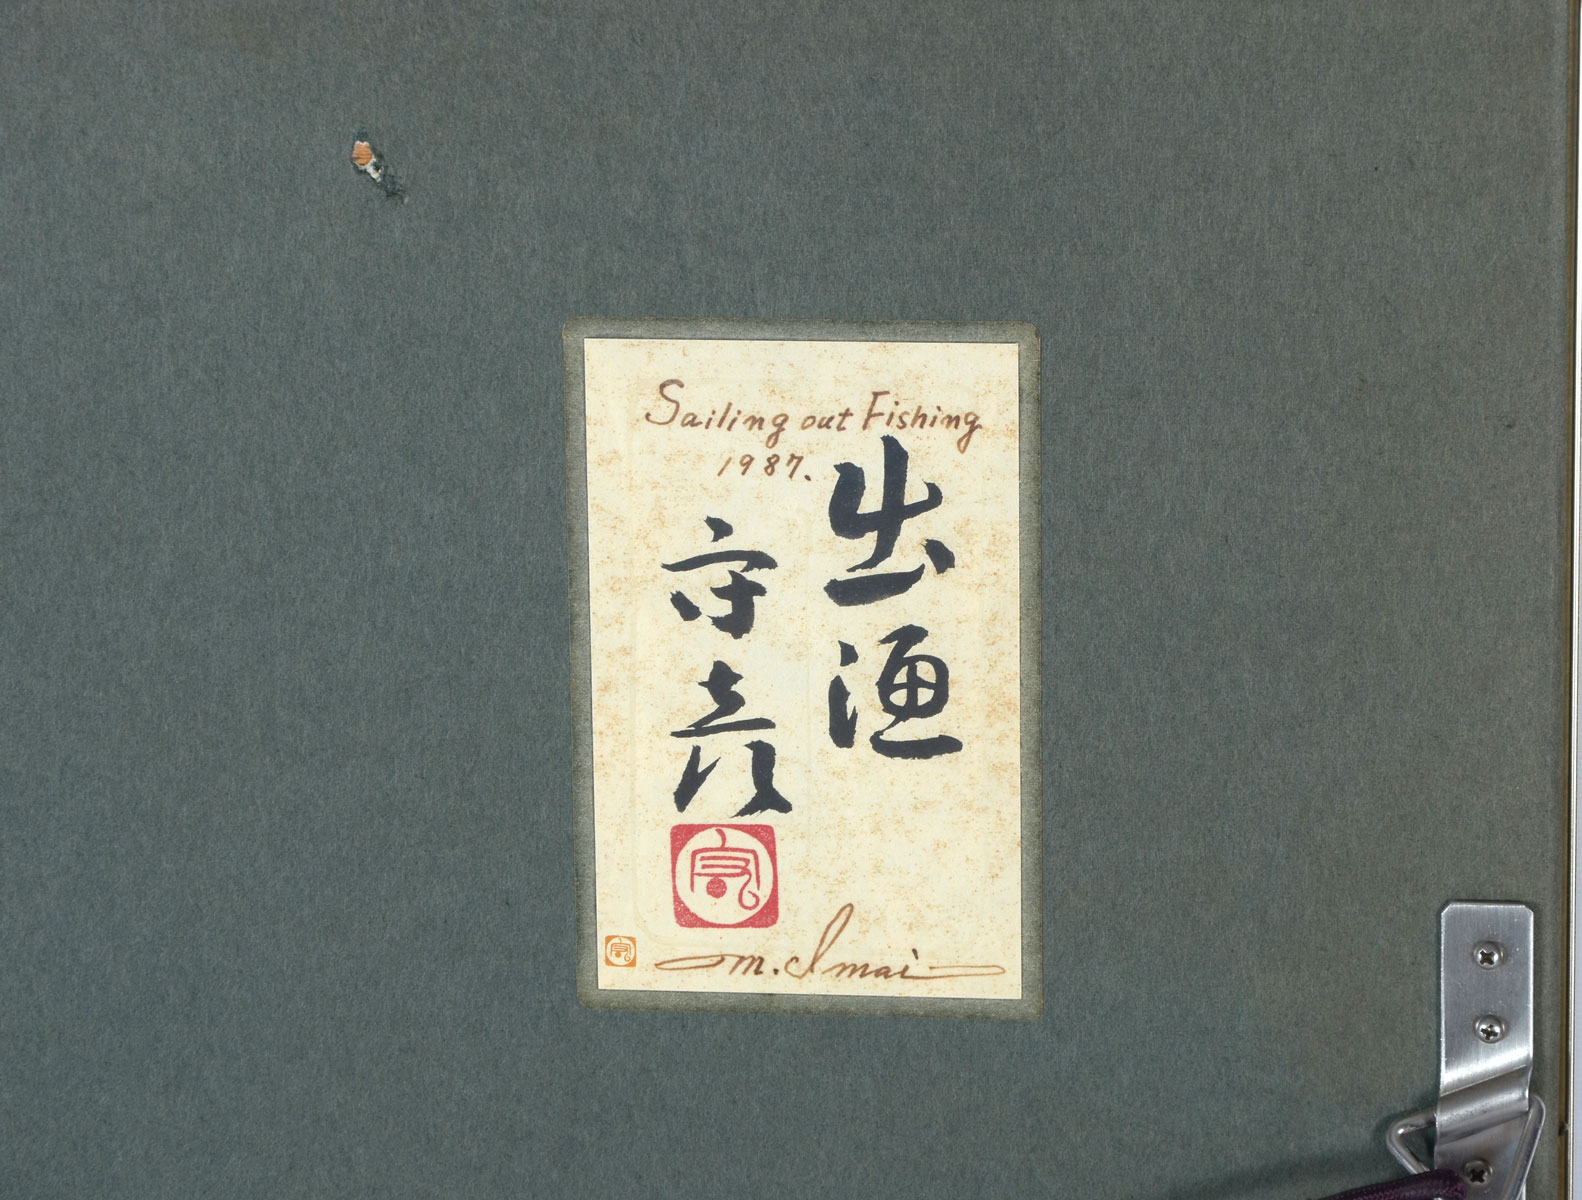 Sailing out Fishing
1987.
出漁
守彦
M. Imai